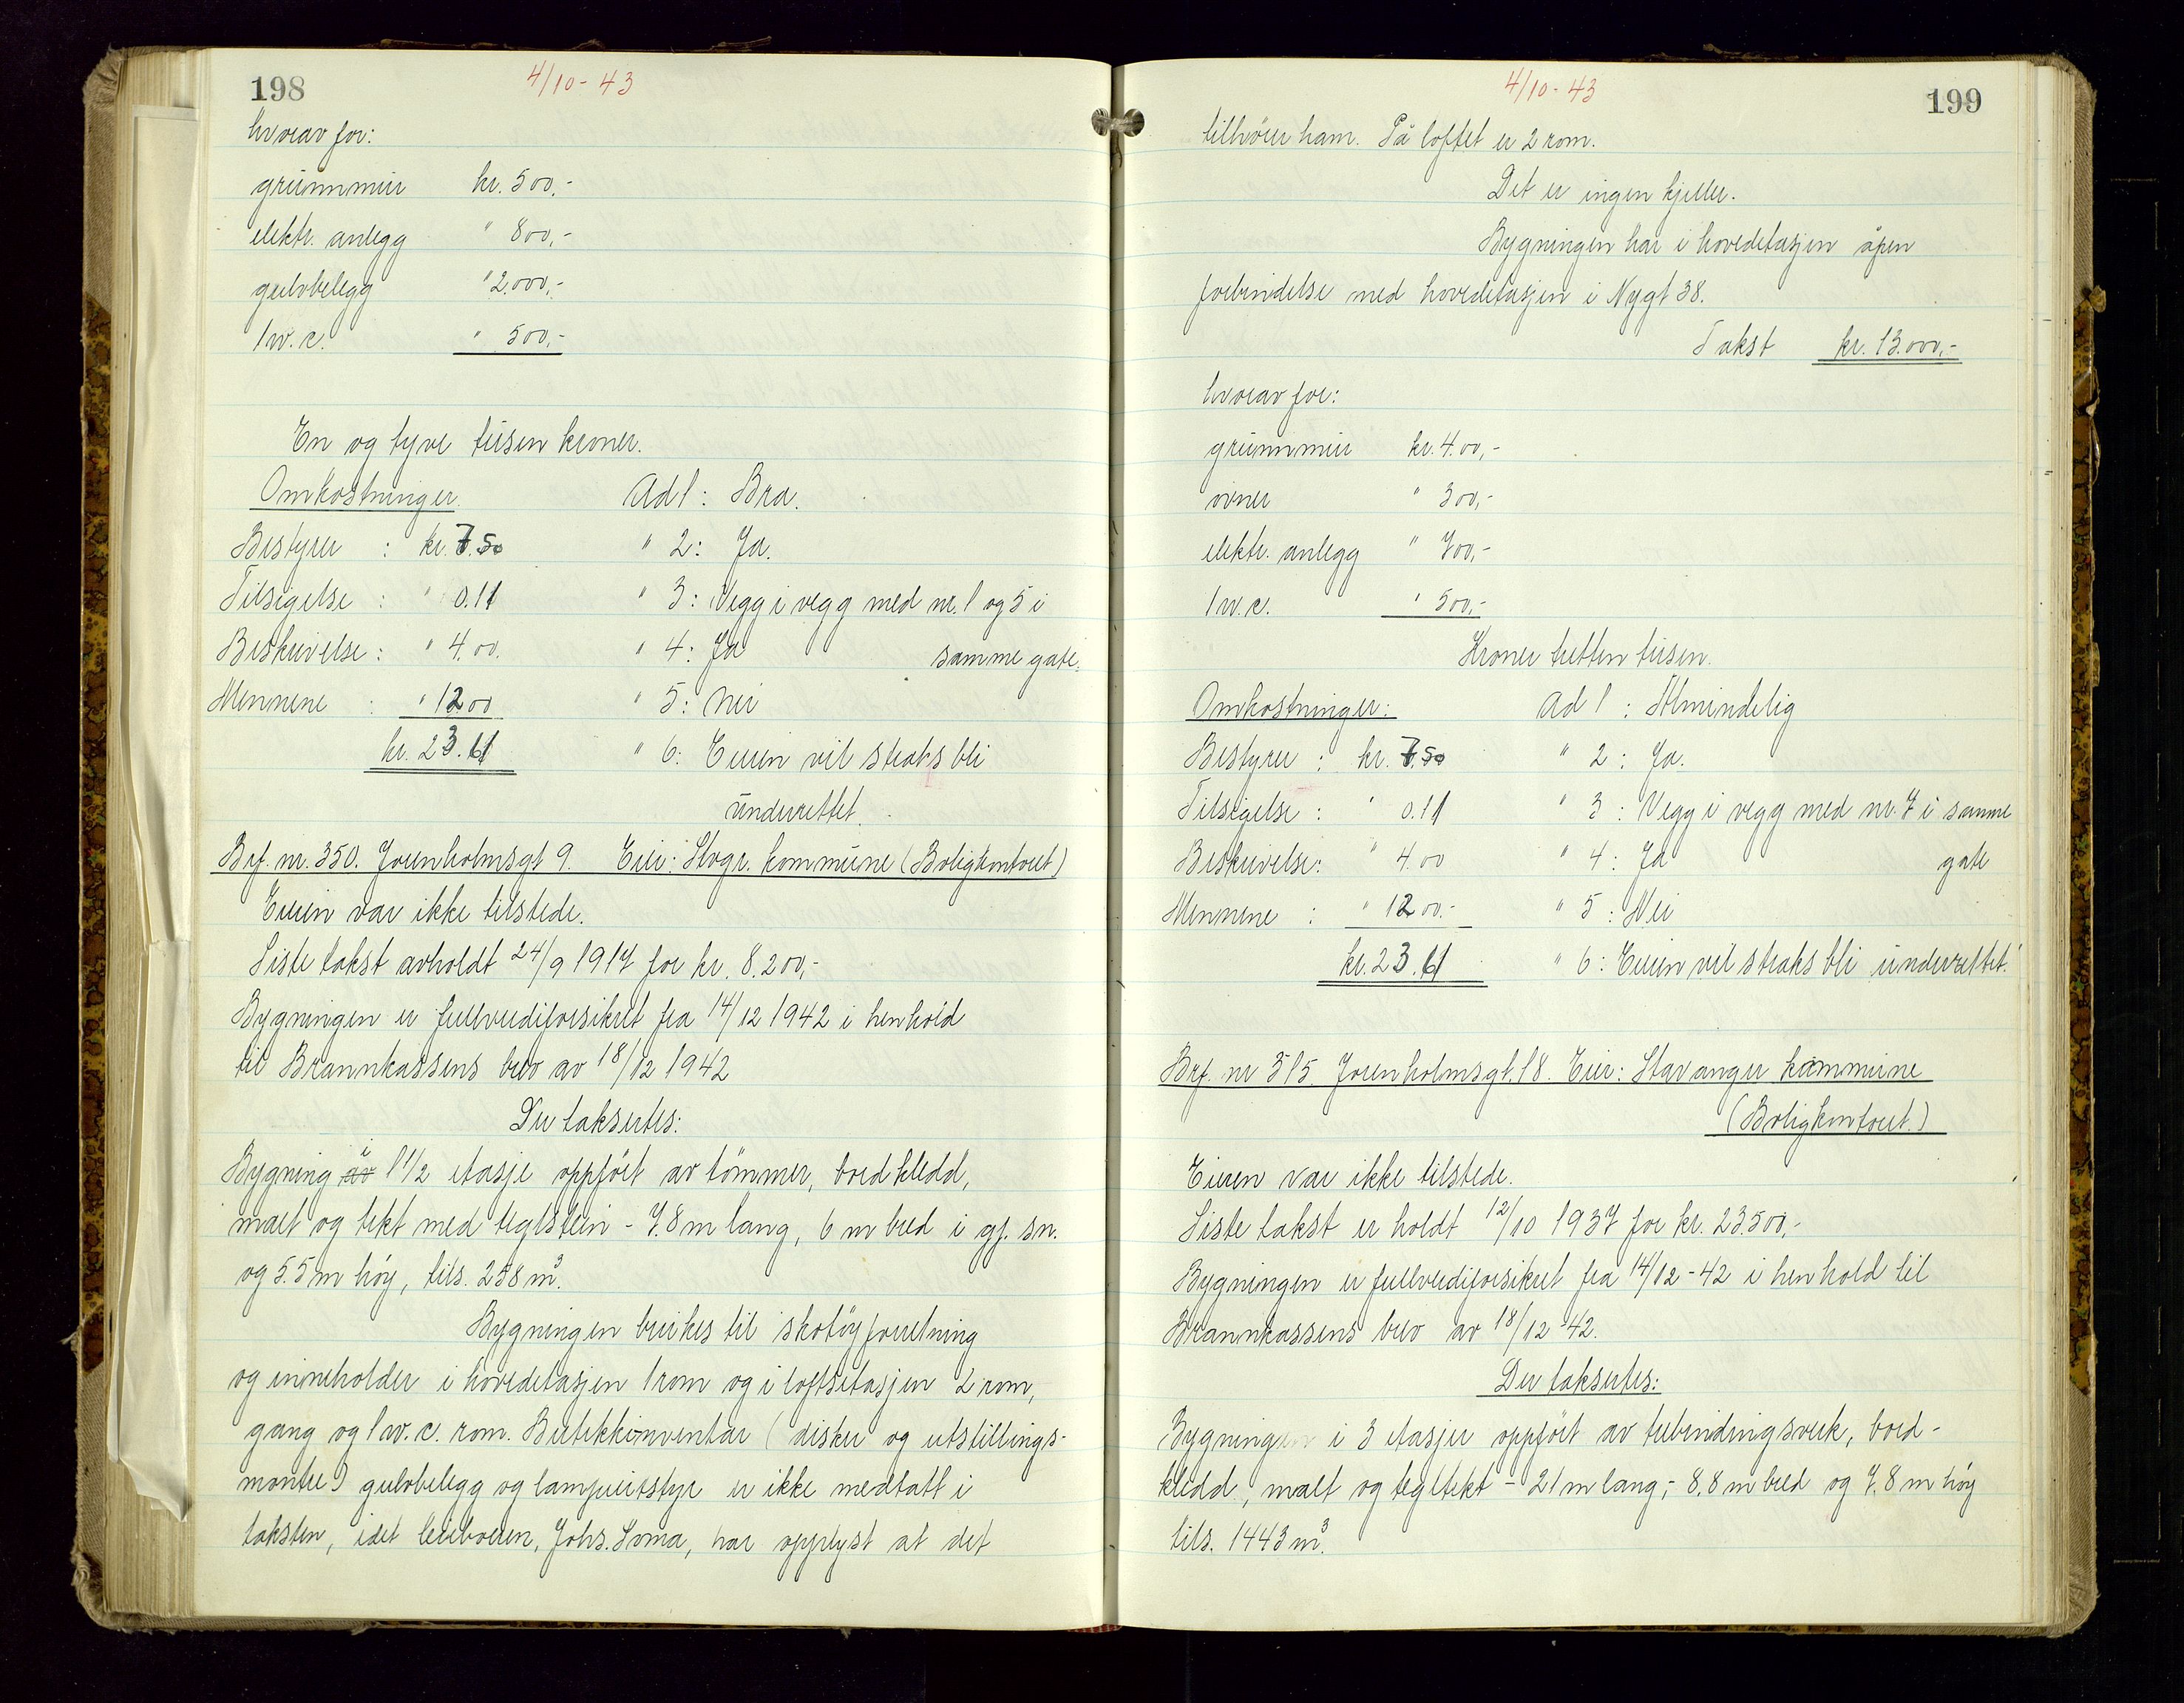 198
4/10-43
hvorav for:
grunnmur kr. 500.-
elektr. anlegg " 800,-
gulvbelegg " 2.000,-
1 w.c. " 500,-
En og tyve tusen kroner.
Omkostninger. Ad 1: Bra.
Bestyrer : kr. 7.50 " 2: Ja.
Tilsigelse : " 0.11 " 3: Vegg i vegg med nr. 1 og 5 i
Beskrivelse: " 4.00. " 4: Ja samme gate.
Mennene : " 12 00 " 5: Nei
kr. 23.61 " 6: Eieren vil straks bli
underrettet.
Brf. nr. 350. Jorenholmsgt 9. Eier: Stvgr. kommune (Boligkontoret)
Eieren var ikke tilstede.
Siste takst avholdt 24/9 1917 for kr. 8.200,-
Bygningen er fullverdiforsikret fra 14/12 1942 i henhold
til Brannkassens brev av 18/12 1942
Der taksertes:
Bygning i 1 1/2 etasje oppført av tömmer, bordkledd,
malt og tekt med teglstein - 7.8 m lang, 6 m bred i gj. sn.
og 5.5 m höy, tils. 258 m³.
Bygningen brukes til skotöyforretning
og inneholder i hovedetasjen 1 rom og i loftsetasjen 2 rom,
gang og 1 w.c. rom. Butikkinventar (disker og utstillings-
montre) gulvbelegg og lampeutstyr er ikke medtatt i
taksten, idet leieboeren, Johs. Soma, har opplyst at det
4/10-43
199
tilhörer ham. På loftet er 2 rom.
Det er ingen kjeller.
Bygningen har i hovedetasjen åpen
forbindelse med hovedetasjen i Nygt 38.
Takst kr. 13.000,-
hvorav for:
grunnmur kr. 4.00,-
ovner " 300,-
elektr. anlegg " 700,-
1 w.c. " 500,-
Kroner tretten tusen.
Omkostninger: Ad 1 : Almindelig
Bestyrer : kr. 7.50 " 2 : Ja.
Tilsigelse : " 0.11 " 3 : Vegg i vegg med nr. 7 i samme
Beskrivelse: " 4.00 " 4: Ja gate
Mennene : " 12 00.- " 5 : Nei
kr. 23.61 " 6: Eieren vil straks bli underrettet.
Brf. nr 315. Jorenholmsgt. 18. Eier: Stavanger kommune
(Boligkontoret.)
Eieren var ikke tilstede.
Siste takst er holdt 12/10 1937 for kr. 23.500,-
Bygningen er fullverdiforsikret fra 14/12-42 i henhold til
Brannkassens brev av 18/12 42.
Der taksertes:
Bygningen i 3 etasjer oppfört av trebindingsverk, bord-
kledd, malt og tegltekt - 21 m lang,- 8.8 m bred og 7.8 m höy
tils. 1443 m³.